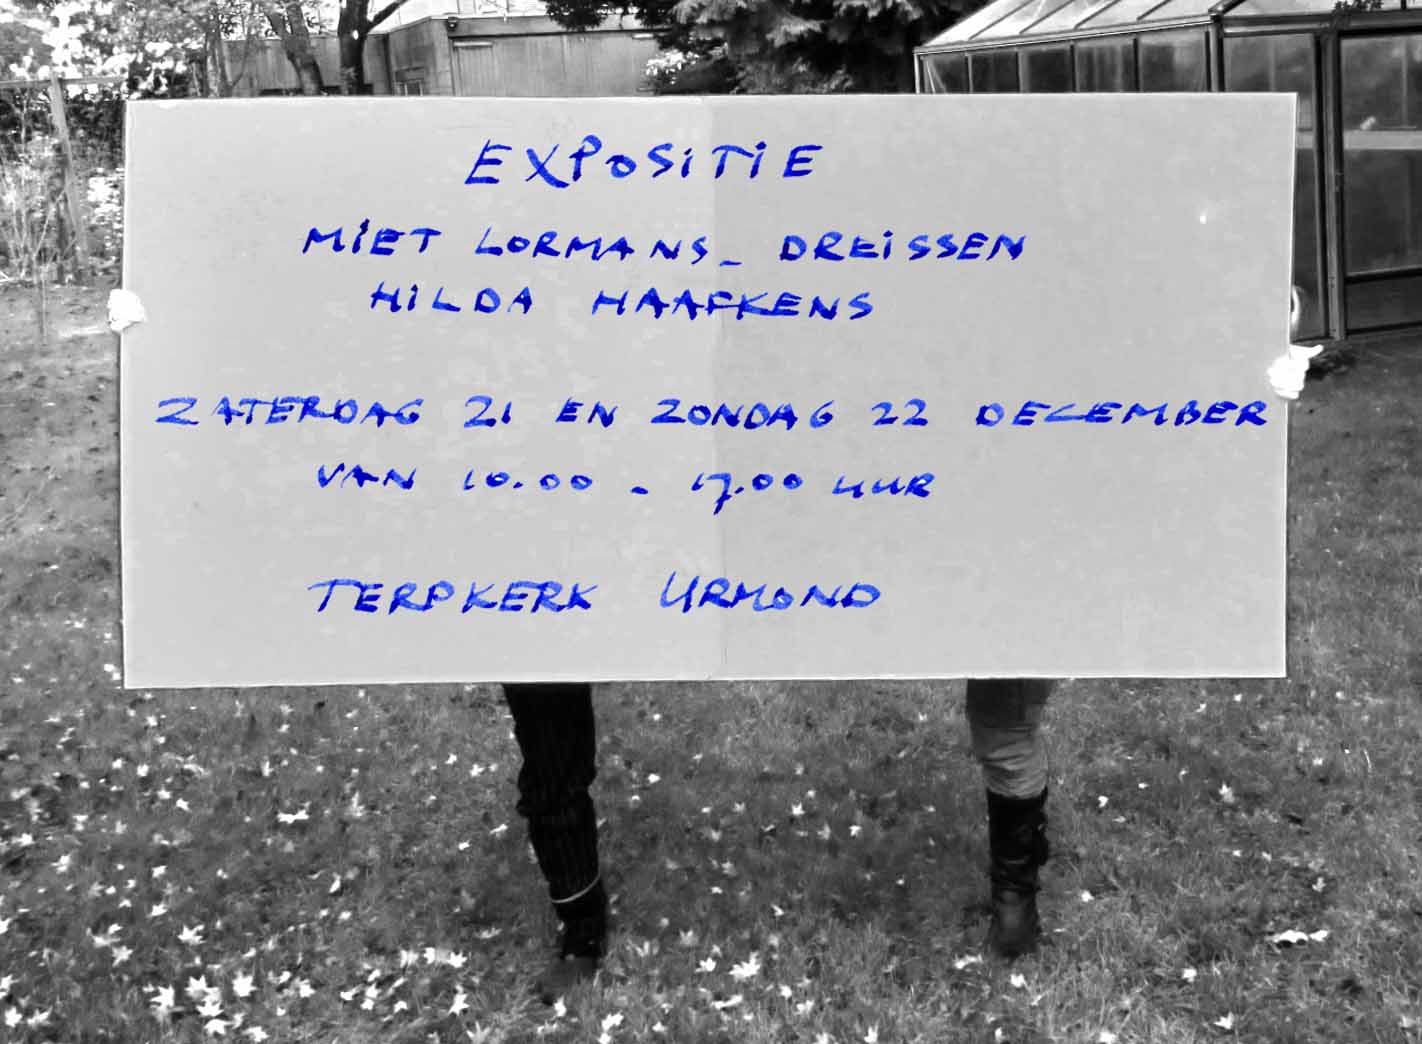 EXPOSITIE
MIET LORMANS - DREISSEN
HILDA HAAFKENS
ZATERDAG 21 EN ZONDAG 22 DECEMBER
VAN 10.00 - 17.00 UUR
TERPKERK URMOND